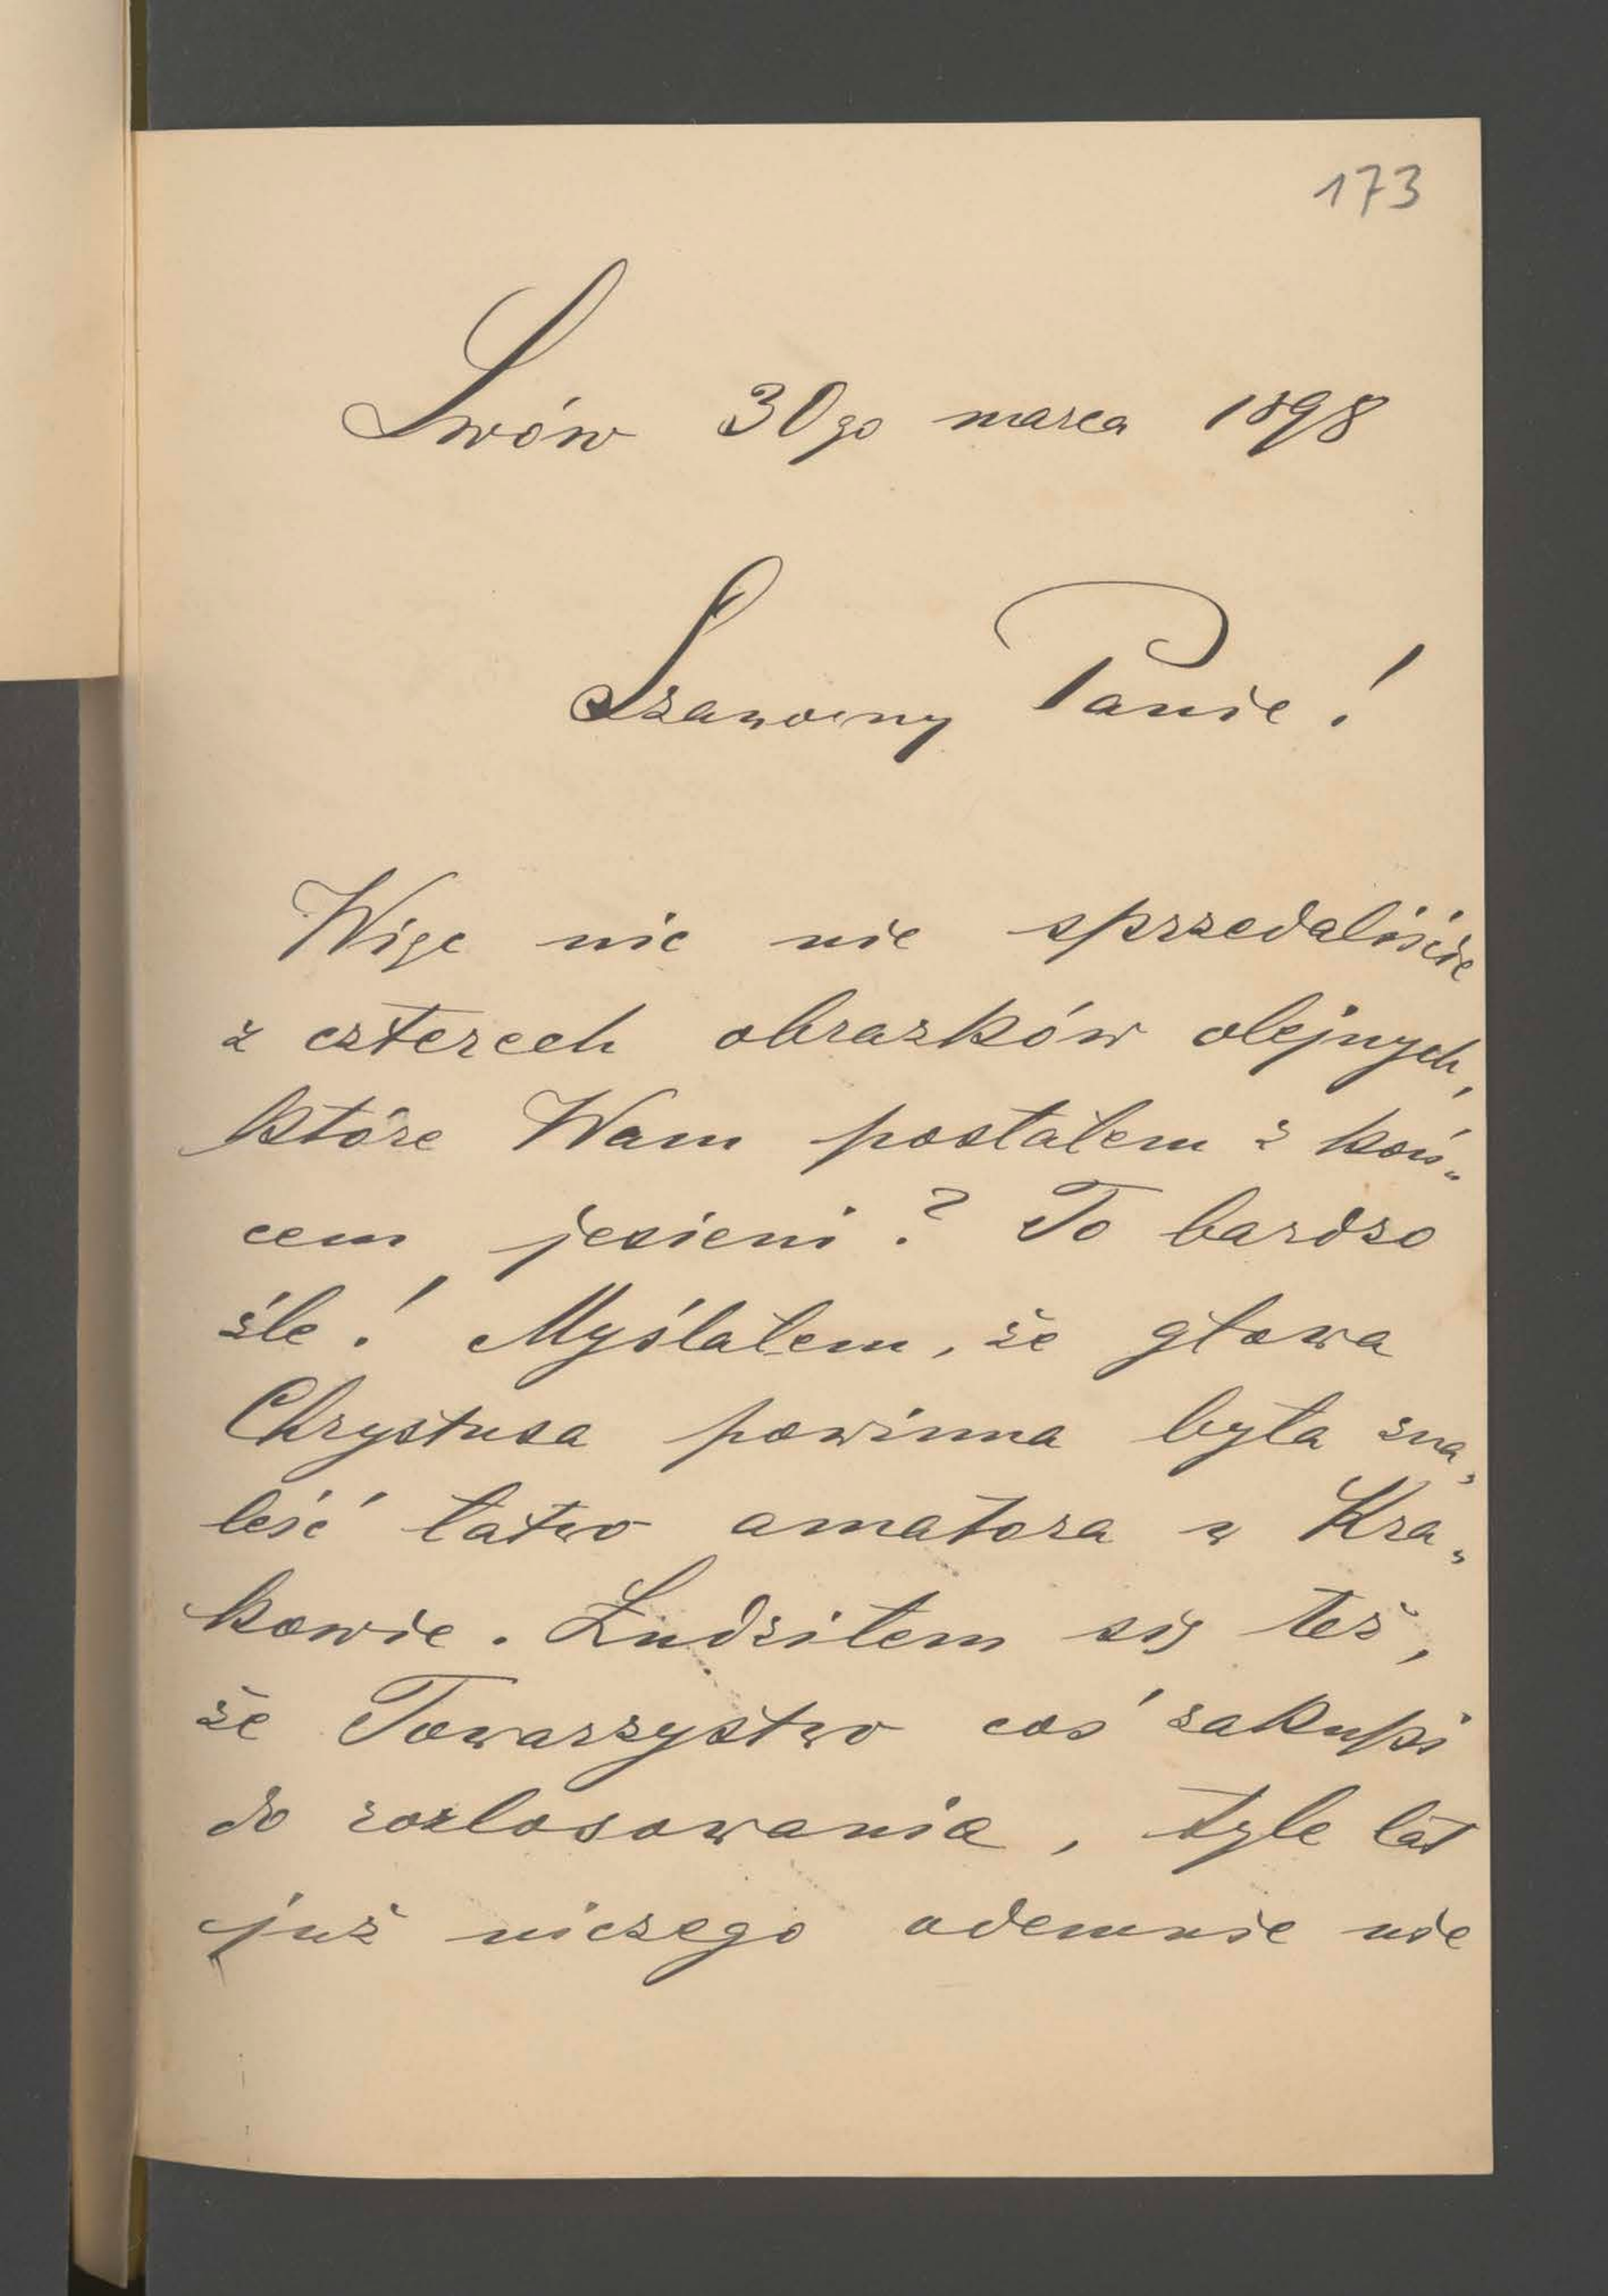 173
Lwów 30go marca 1898
Szanowny Panie!
Więc nic nie sprzedaliście
z czterech obrazków olejnych,
które Wam posłałem z koń„
cem jesieni? To bardzo
źle! Myślałem, że głowa
Chrystusa powinna była zna„
leść łatwo amatora w Kra„
kowie. Łudziłem się też,
że Towarzystwo coś zakupi
do rozlosowania, tyle lat
już niczego odemnie nie